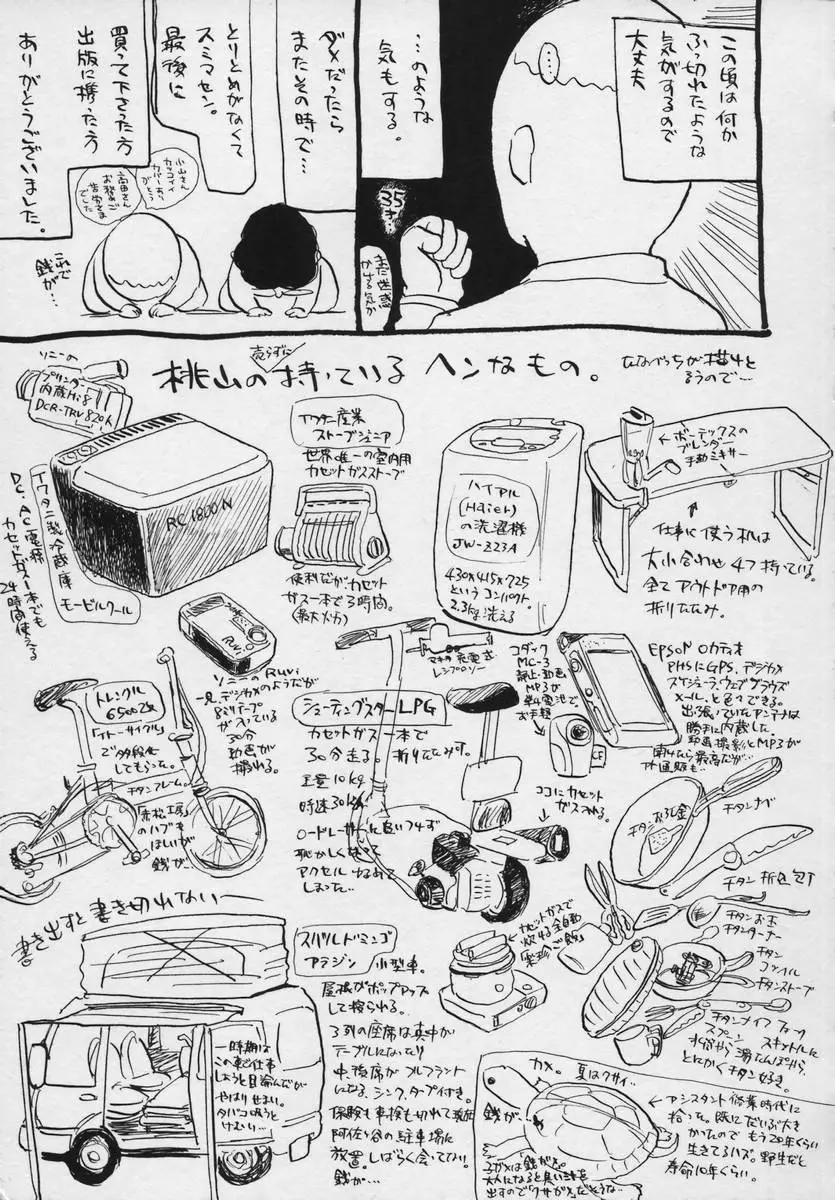 この頃は何か
ふっ切れたような
気がするので
大丈夫
…のような
気もする。
35才…
まだ性惑
ダメだったら
またその時で…
とりとめがなくて
スミマセン。
最後に
買って下さった方
出版に携った方
ありがとうございました。
小山さん
カッコイイ
カバーあり
がとう
高田さん
お務めご
苦労さま
でした
これで
銭が…
売らずに
桃山の持っている ヘンなもの。
ソニーの
プリンター
内蔵Hi8
DCR-TRV820K
RC1800N
イワタニ製冷蔵庫
モービルクール
DC、AC電源
カセットガス一本でも
24時間使える
イワタニ産業
ストーブジュニア
世界唯一の室内用
カセットガスストーブ
便利だがカセット
ガス一本で3時間。
(最大火力)
ハイアル
(Haier)
の洗濯機
JW-Z23A
430×415×725
というコンパクト。
2.3kg洗える
ボーテックスの
ブレンダー
手動ミキサー
仕事に使う机は
大小合わせ4つ持っている。
全てアウトドア用の
折りたたみ。
ソニーのRuvi
一見、デジカメのようだが
8ミリテープ
が入っている
30分
動画が
撮れる。
トレンクル
6500改
「イトーサイクル」
で多段化
してもらった。
チタンフレーム。
「赤松工房」
のハブも
ほしいが
銭が…
シューティングスターLPG
カセットガス一本で
30分走る。折りたたみ可。
重量10kg
時速30km
ロードレーサーに
アクセルゆるめて
しまった…
マキタ充電式
レシプロソー
ココにカセット
ガス入れる。
コダック
MC-3
静止・動画
MP3が
単4電池で
お手軽
CF
EPSON ロカティオ
PHSにGPS、デジカメ
スケジューラ、ウェブブラウズ
メール、と色々できる。
出っ張っていたアンテナは
勝手に内蔵した。
動画撮影とMP3が
チタンおろし金
チタンナベ
チタン折込包丁
チタンお玉
チタンターナー
チタン
コッヘル
チタンストーブ
チタンナイフフォーク
スプーン
スキットルに
水筒から湯たんぽから、
とにかくチタン好き。
カセットガスで
炊ける全自動
書き出すと書き切れない—
スバルドミンゴ
アラジン 小型車。
屋根がポップアップ
して拾られる。
3列の座席は真中が
テーブルになったり
中後席が フルフラット
になる。シンク、タープ付き。
保険も車検も切れて現在
阿佐ヶ谷の駐車場に
放置。しばらく会ってない。
銭が…
一時期は
この車で仕事
しようと目論んだが
やはりせまい。
タバコ吸うと
けむい…
カメ。
夏はクサイ
銭が…
アシスタント修業時代に
拾った。既にだいぶ大き
かったので もう20年くらい
生きてるハズ。野生だと
寿命10年くらい。
子ガメは「銭がメ」。
大人になると臭い汁を
出すので「クサガメ」だそうな…